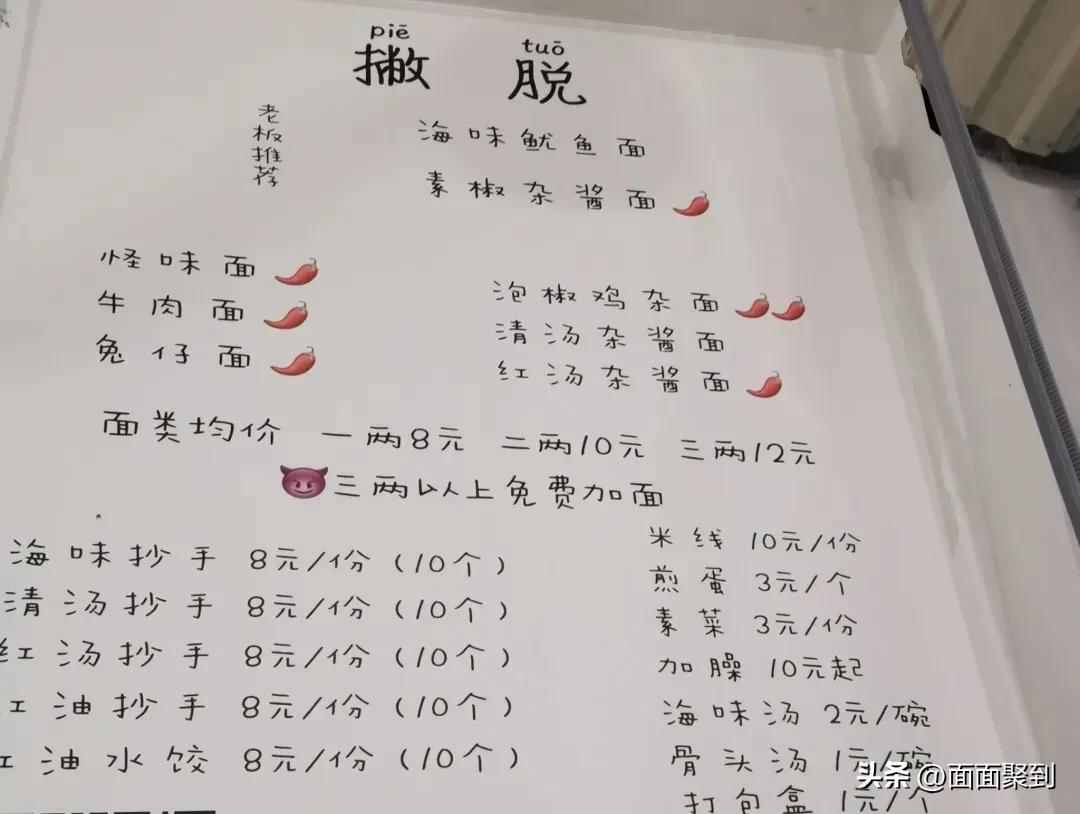 piē tuō
撇 脱
老板推荐
海味鱿鱼面
素椒杂酱面
怪味面
牛肉面
兔仔面
泡椒鸡杂面
清汤杂酱面
红汤杂酱面
面类均价 一两8元 二两10元 三两12元
三两以上免费加面
海味抄手 8元/份(10个)
清汤抄手 8元/份(10个)
红汤抄手 8元/份(10个)
红油抄手 8元/份(10个)
红油水饺 8元/份(10个)
米线 10元/份
煎蛋 3元/个
素菜 3元/份
加臊 10元起
海味汤 2元/碗
骨头汤 1元/碗
打包盒 1元/个
头条 @面面聚到